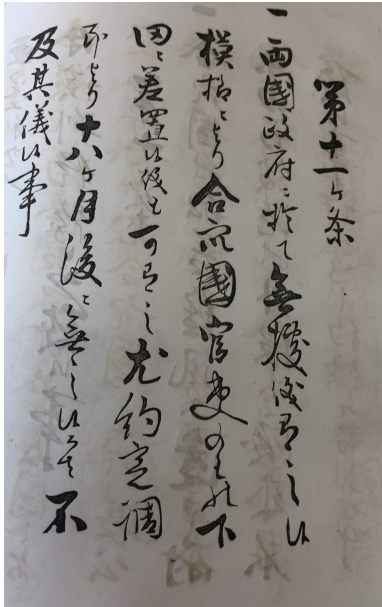 第十一ケ条
一両國政府ニ於て無據儀有之候
模樣ニより合衆國官吏のもの下
田ニ差置候儀も可有之尤約定調
印より十八ケ月後ニ無之候ては不
及其儀候事